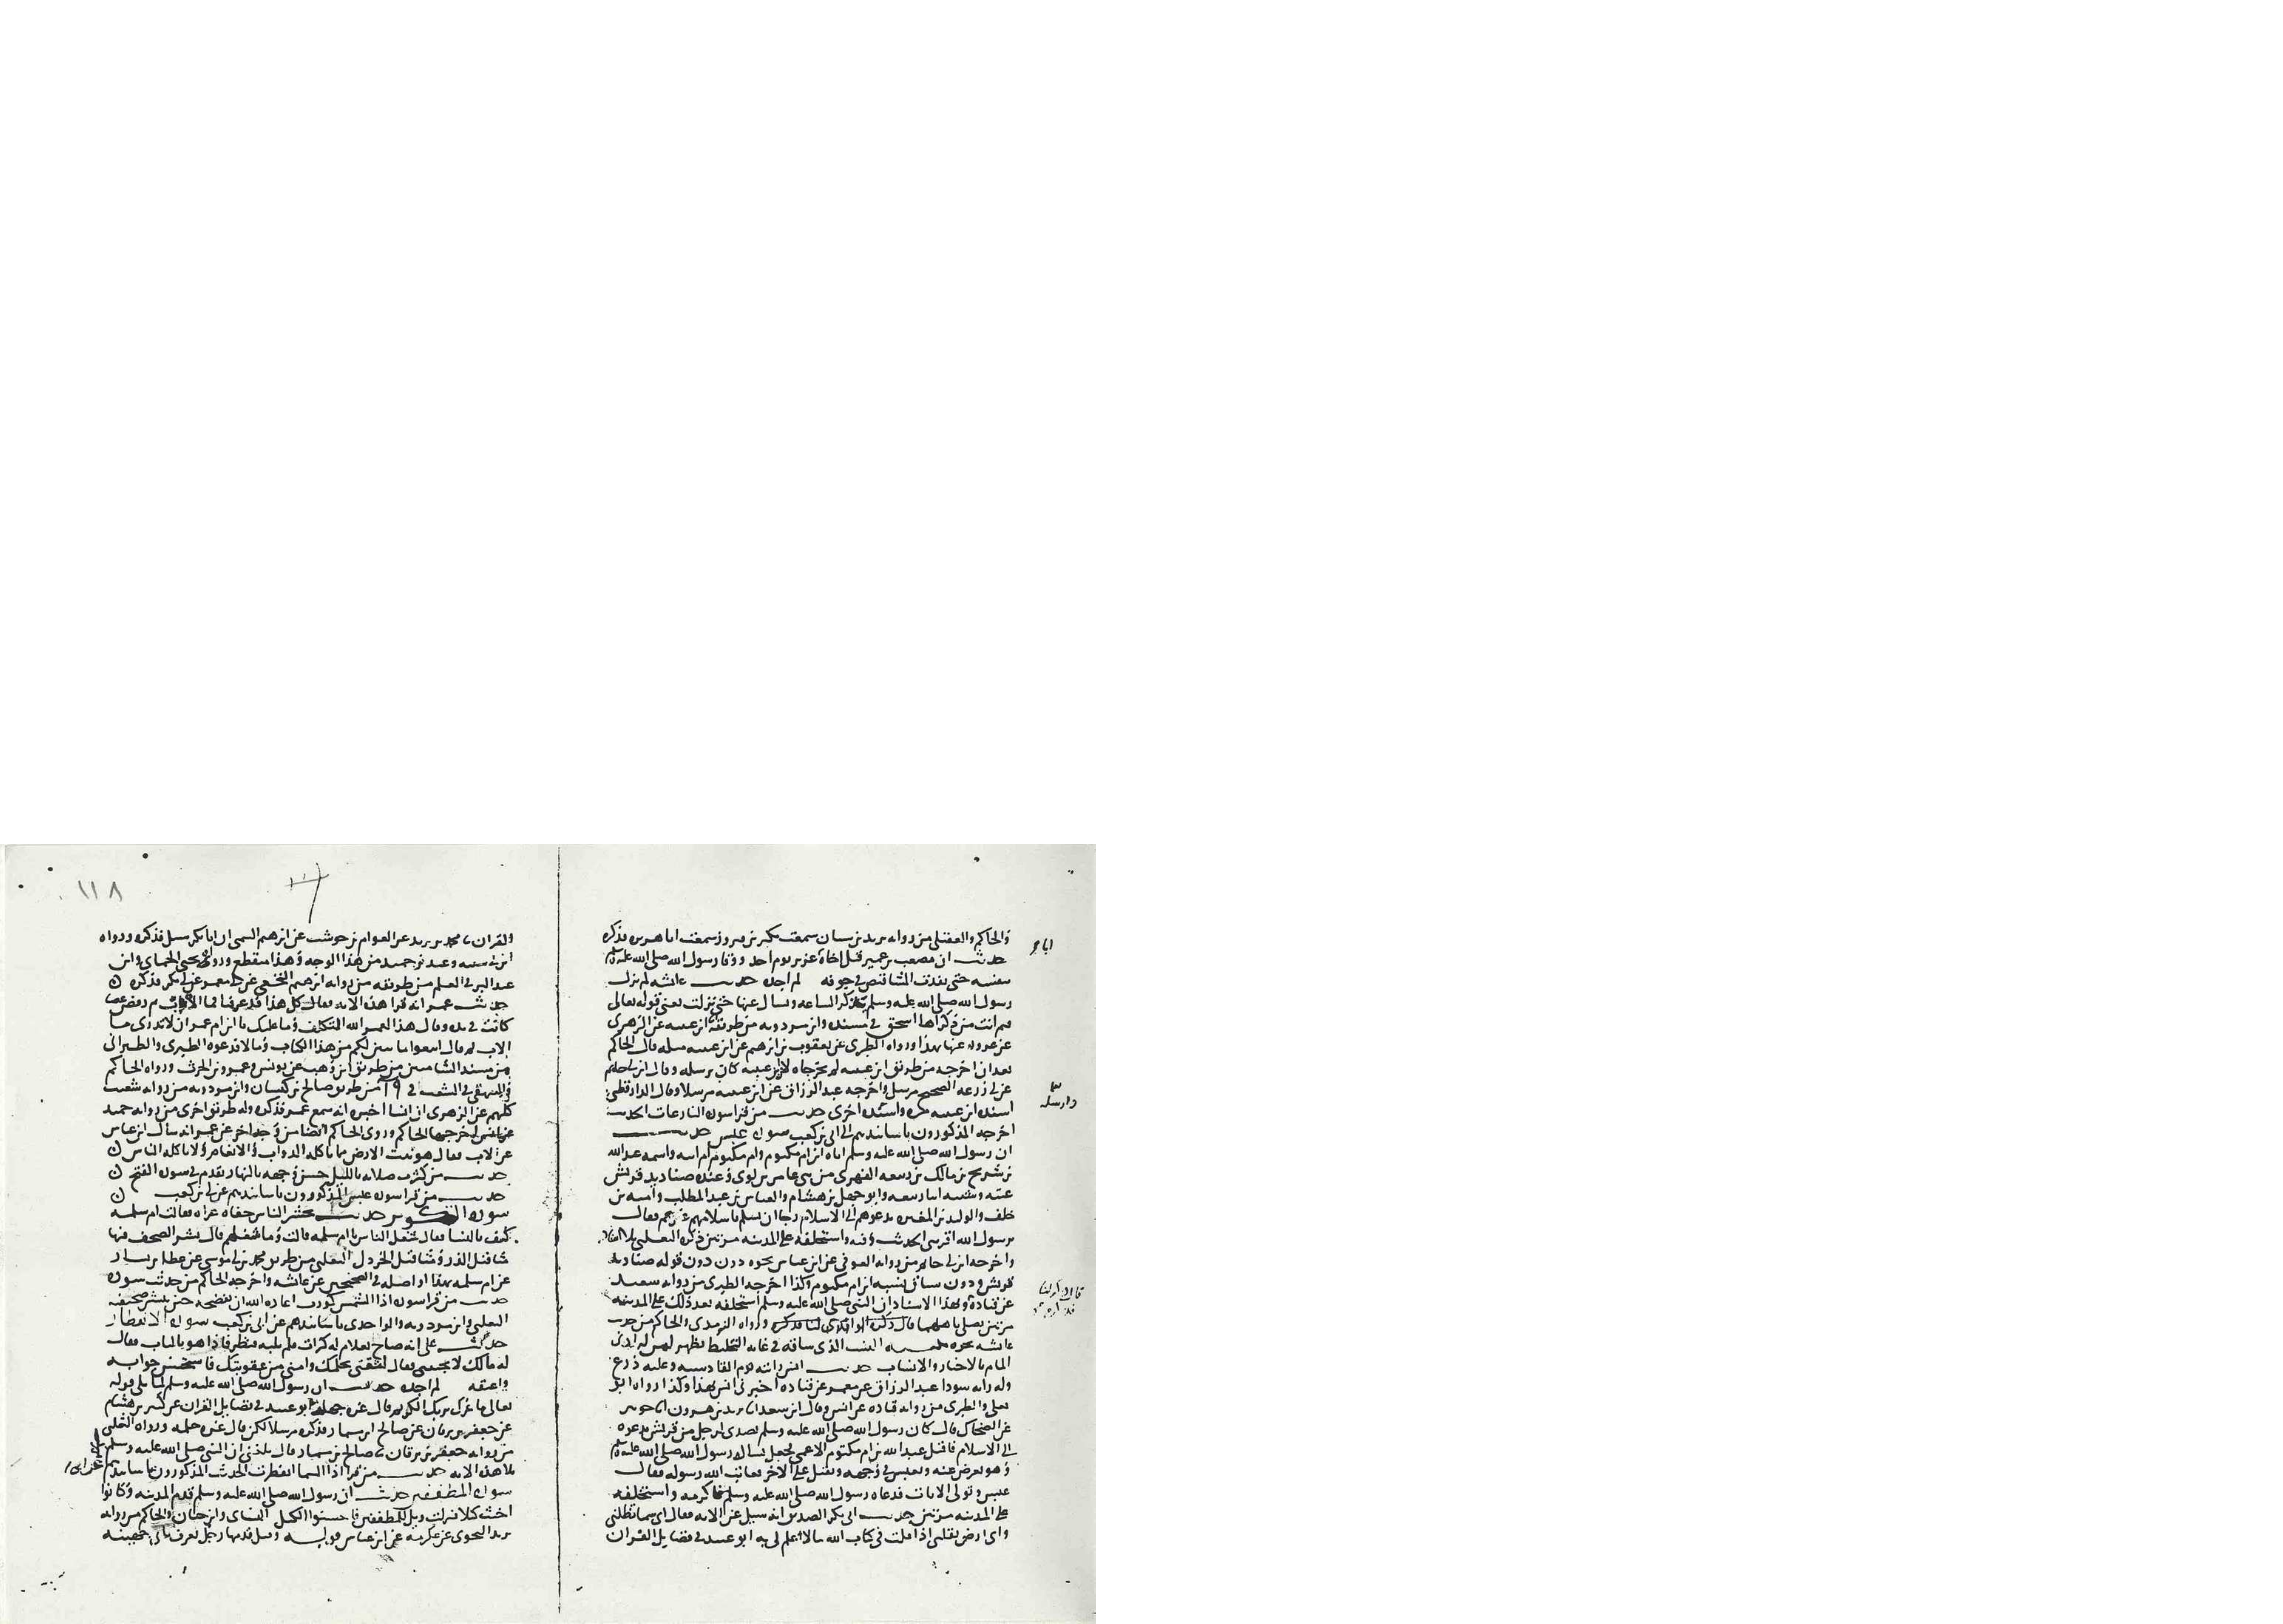 والحاكم والعقيلى من رواىه يزيد بن سنان سمعت بكير بن فيروز سمعت ابا هريره فذكره
حديث ان مصعب بن عمير قتل اخاه عزيز يوم احد ووقا رسول الله صلى الله عليه وسلم
بنفسه حتى نفذت المشاقص في جوفه لم اجده حديث عائشه لم يزل
رسول الله صلى الله عليه وسلم يذكر الساعه ويسال عنها حتى نزلت يعنى قوله تعالى
فيم انت من ذكراها اسحق في مسنده وابن مردويه من طريقه ابن عيينه عن الزهرى
عن عروه عنها بهذا ورواه الطبرى عن يعقوب بن ابرهيم عن ابن عيينه مثله قال الحاكم
بعد ان اخرجه من طريق ابن عيينه لم يخرجاه لان ابن عيينه كان يرسله وقال ابن ابي حاتم
عن ابي زرعه الصحيح مرسل واخرجه عبد الرزاق عن ابن عيينه مرسلا وقال الدارقطنى
اسنده ابن عيينه مره واسنده اخرى حديث من قرا سوره النازعات الحديث
اخرجه المذكورون باسانيدهم الى ابي بن كعب سوره عبس حديث
ان رسول الله صلى الله عليه وسلم اتاه ابن ام مكتوم وام مكتوم ام ابيه واسمه عبد الله
بن شريح بن مالك بن ربيعه الفهرى من بنى عامر بن لوى وعنده صناديد قريش
عتبه وشيبه ابنا ربيعه وابو جهل بن هشام والعباس بن عبد المطلب واميه بن
خلف والوليد بن المغيره يدعوهم الى الاسلام رجا ان يسلم باسلامهم غيرهم فقال
يرسول الله اقرىنى الحديث وفيه واستخلفه على المدينه مرتين ذكره الثعلبى بلا اسناد
واخرجه ابن ابي حاتم من رواىه العوفى عن ابن عباس نحوه دون قوله صناديد
قريش ودون سياق نسبه ابن ام مكتوم وكذا اخرجه الطبرى من رواىه سعيد
عن قتاده وبهذا الاسناد ان النبى صلى الله عليه وسلم استخلفه بعد ذلك على المدينه
مرتين يصلى باهلها ورواه الترمذى والحاكم من حديث
عائشه نحوه النسب الذى ساقه في غايه التخليط يظهر لمن له ادنى
المام بالاخبار والانساب حديث انس راىته يوم القادسيه وعليه درع
وله رايه سودا عبد الرزاق عن معمر عن قتاده اخبرنى انس بهذا وكذا رواه ابو
يعلى والطبرى من رواىه قتاده عن انس وقال ابن سعد انا يزيد بن هرون انا جويبر
عن الضحاك قال كان رسول الله صلى الله عليه وسلم تصدى لرجل من قريش يدعوه
الى الاسلام فاقبل عبد الله بن ام مكتوم الاعمى فجعل يسال رسول الله صلى الله عليه وسلم
وهو يعرض عنه ويعبس في وجهه ويقبل على الاخر فعاتب الله رسوله فقال
عبس وتولى الايات فدعاه رسول الله صلى الله عليه وسلم فاكرمه واستخلفه
على المدينه مرتين حديث ابى بكر الصديق انه سيل عن الاب فقال اى سما تظلنى
واى ارض تقلنى اذا قلت في كتاب الله ما لا اعلم لى به ابو عبيد في فضايل القران
١١٨
والقران ثنا محمد بن يزيد عن العوام بن حوشب عن ابرهيم التيمى ان ابا بكر سيل فذكره ورواه
ابن ابي شيبه وعبد بن حميد من هذا الوجه وهذا منقطع ورواه يحيى الحمانى وابن
عبد البر في العلم من طريقه من رواىه ابرهيم النخعى عن ابي معمر عن ابي بكر فذكره
حديث عمر انه قرا هذه الايه فقال كل هذا قد عرفنا فما الاب ثم رفض عصا
كانت في يده وقال هذا لعمر الله التكلف وما عليك يا ابن ام عمر ان لا تدرى ما
الاب ثم قال اتبعوا ما تبين لكم من هذا الكتاب وما لا فدعوه الطبرى والطبرانى
من مسند الشاميين من طريق ابن وهب عن يونس وعمرو بن الحرث ورواه الحاكم
والبيهقى في الشعب في ١٩ من طريق صالح بن كيسان وابن مردويه من رواىه شعيب
كلهم عن الزهرى ان انسا اخبره انه سمع عمر فذكره وله طريق اخرى من رواىه حميد
عن انس اخرجها الحاكم وروى الحاكم ايضا من وجه اخر عن عمر انه سال ابن عباس
عن الاب فقال هو نبت الارض مما ياكله الدواب والانعام ولا ياكله الناس
حديث من كثرت صلاته بالليل حسن وجهه بالنهار تقدم في سوره الفتح
حديث من قرا سوره عبس المذكورون باسانيدهم عن ابي بن كعب
سوره التكوير حديث يحشر الناس حفاه عراه فقالت ام سلمه
كيف بالنسا فقال شغل الناس يا ام سلمه قالت وما شغلهم قال نشر الصحف فيها
مثاقيل الذر ومثاقيل الخردل الثعلبى من طريق محمد بن ابي موسى عن عطا بن يسار
عن ام سلمه بهذا واصله في الصحيحين عن عائشه واخرجه الحاكم من حديث سوده
حديث من قرا سوره اذا الشمس كورت اعاذه الله ان يفضحه حين ينشر صحيفته
الثعلبى وابن مردويه والواحدى باسانيدهم عن ابي بن كعب سوره الانفطار
حديث على انه صاح بغلام له كرات فلم يلبه فنظر فاذا هو بالباب فقال
له مالك لا تجيبنى فقال لثقتى بحلمك وامنى من عقوبتك فاستحسن جوابه
واعتقه لم اجده حديث ان رسول الله صلى الله عليه وسلم لما تلى قوله
تعالى ما غرك بربك الكريم قال غره جهله ابو عبيد في فضايل القران عن كثير بن هشام
عن جعفر بن برقان عن صالح بن مسمار فذكره مرسلا لكن قال غره حلمه ورواه الثعلبى
من رواىه جعفر بن برقان ثنا صالح بن مسمار قال بلغنى ان النبى صلى الله عليه وسلم
تلا هذه الايه حديث من قرا اذا السما انفطرت الحديث المذكورون باسانيدهم
سوره المطففين حديث ان رسول الله صلى الله عليه وسلم قدم المدينه وكانوا
اخبث كيلا فنزلت ويل للمطففين فاحسنوا الكيل النساى وابن حبان والحاكم من رواىه
يزيد النحوى عن عكرمه عن ابن عباس قوله وقيل قدمها رجل يعرف بابي جهينه